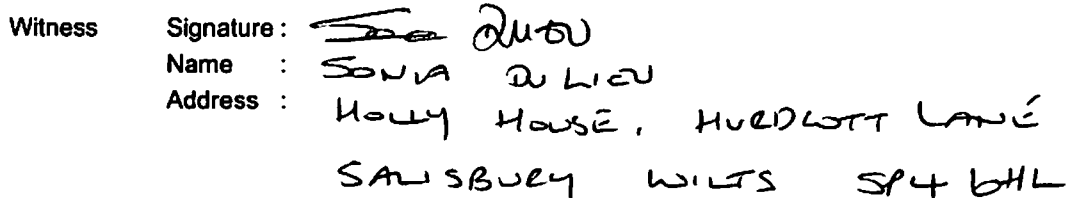 Witness Signature :
Name : SONIA DU LIEU
Address : HOLLY HOUSE, HURDCOTT LANE
SALISBURY WILTS SP4 6HL